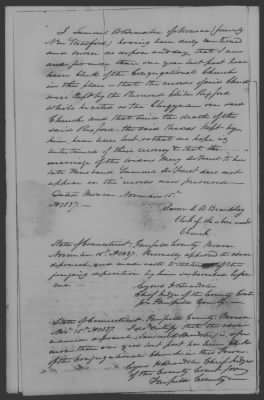 I Samuel B Beardsley of Monroe (formerly
New Stratford) having been duly cautioned
and sworn do depose and say that I am
and for more than one year last past have
been Clerk of the Congregational Church
in this place — that the records of said Church
was kept by the Reverend Elisha Rexford
while he acted as the Clergyman over said
Church and that since the death of the
said Rexford, the said Records kept by
him, have been lost so that no hope is
entertained of their recovery & that the
marriage of the widow Mary De Forest to her
late Husband Samuel De Forest does not
appear on the records now preserved —
Dated Monroe November 15th
AD 1837.
Samuel B. Beardsley
Clerk of the above
Church
State of Connecticut, Fairfield County, Monroe
November 15th AD 1837. Personally appeared the above
deponent, and made oath to the truth of the
foregoing deposition by him subscribed before
me —
Cyrus H Beardslee
Chief Judge of the County Court
for Fairfield County
State of Connecticut, Fairfield County, Monroe
Nov. 15th AD 1837. I do certify that the above
deponent, Samuel B Beardsley, is and for
more than one year last past has been Clerk
of the Congregational Church in this Town.
Cyrus H Beardslee Chief Judge
of the County Court for
Fairfield County